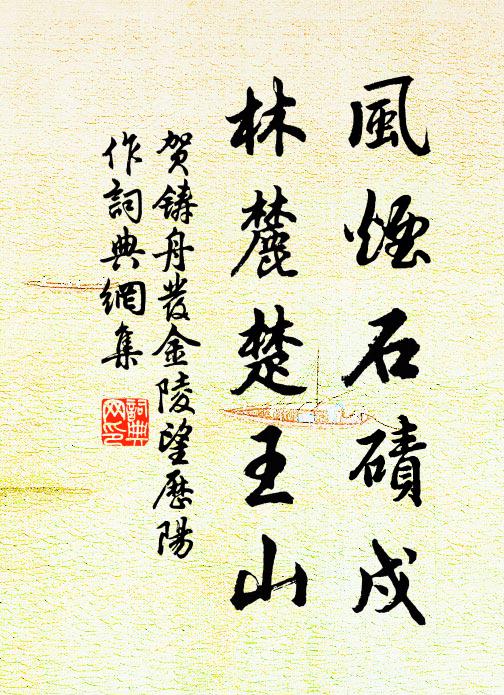 風煙石磧戍
林麓楚王山
賀鑄舟發金陵望歷陽
作詞典網集
詞典
网印